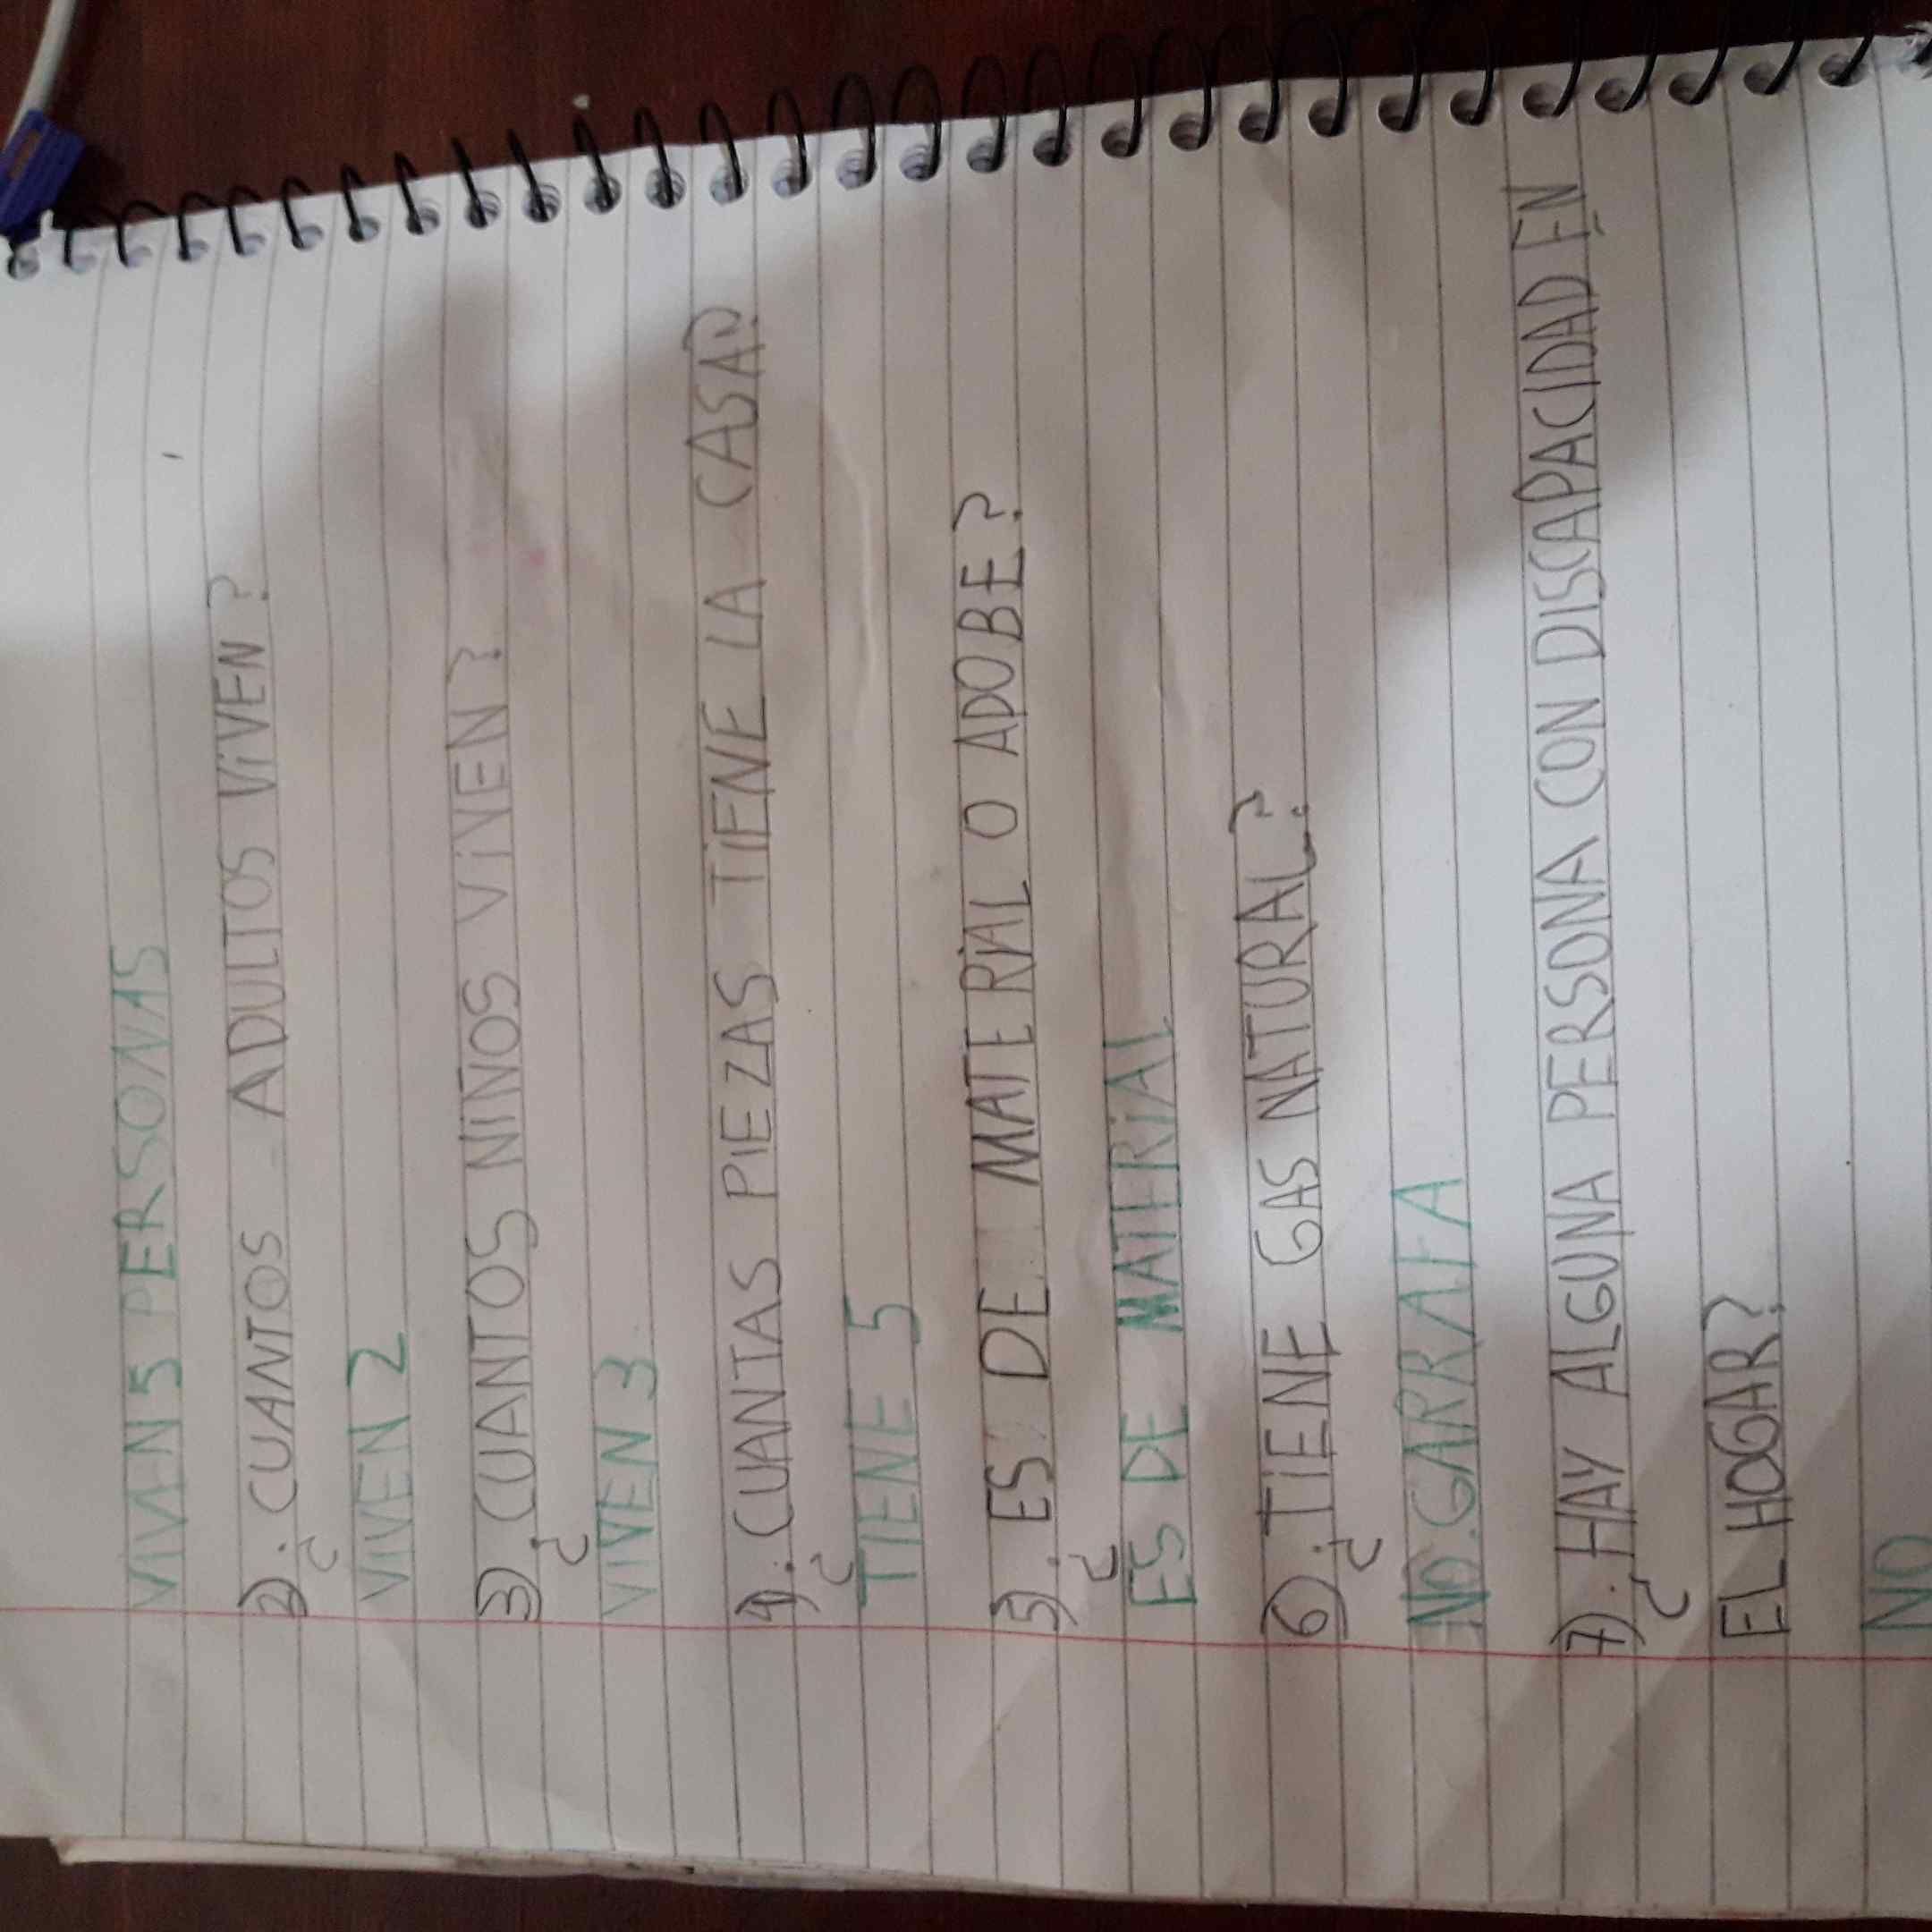 VIVEN 5 PERSONAS
2). ¿CUANTOS ADULTOS ViVEN?
ViVEN 2
3) ¿CUANTOS NIÑOS ViVEN?
VIVEN 3
4). ¿CUANTAS PIEZAS TiENE LA CASA?
TIENE 5
5). ¿ES DE MATERiAL O ADOBE?
ES DE MATERiAL
6). ¿TIENE GAS NATURAL?
NO.GARRAFA
7). ¿HAY ALGUNA PERSONA CON DISCAPACIDAD EN
EL HOGAR?
NO